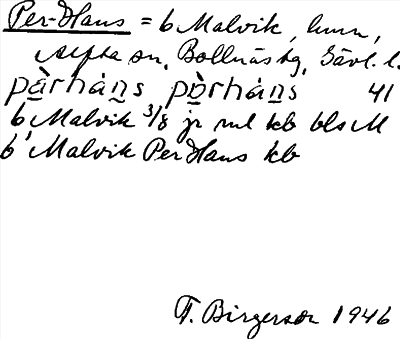 Per-Hans = b Malvik, hmn,
Alfta sn, Bollnäs tg, Gävl. l.
pàrháns pòrháns 41
b Malvik 3/8 jr ml kb bls M
b Malvik Per Hans kb
F. Birgerson 1946